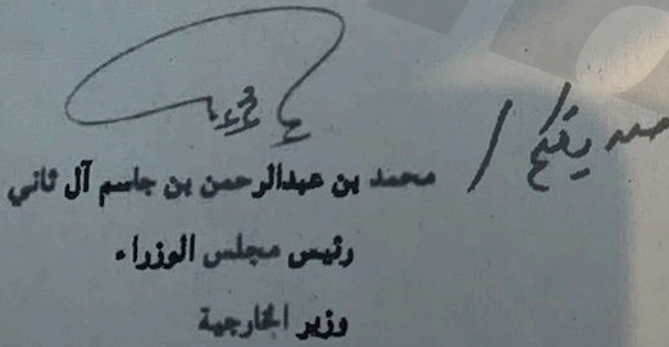 محمد بن عبدالرحمن بن جاسم آل ثاني
رئيس مجلس الوزراء
وزير الخارجية